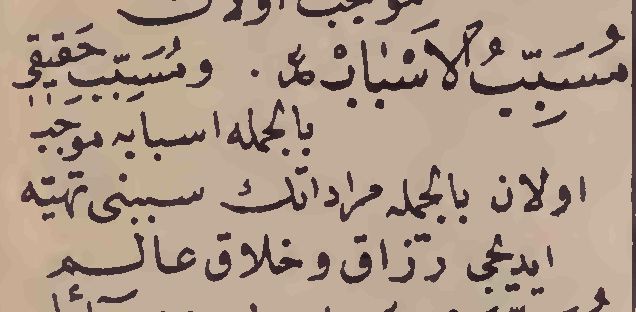 موجب اولان
مُسَبِّبُ الاَسْبَابْ در . ومُسَبِّبِ حَقِيقِى
بالجمله اسبابه موجب
اولان بالجمله مراداتك سببنى تهيّه
ايديجى رزّاق وخلاق عالم